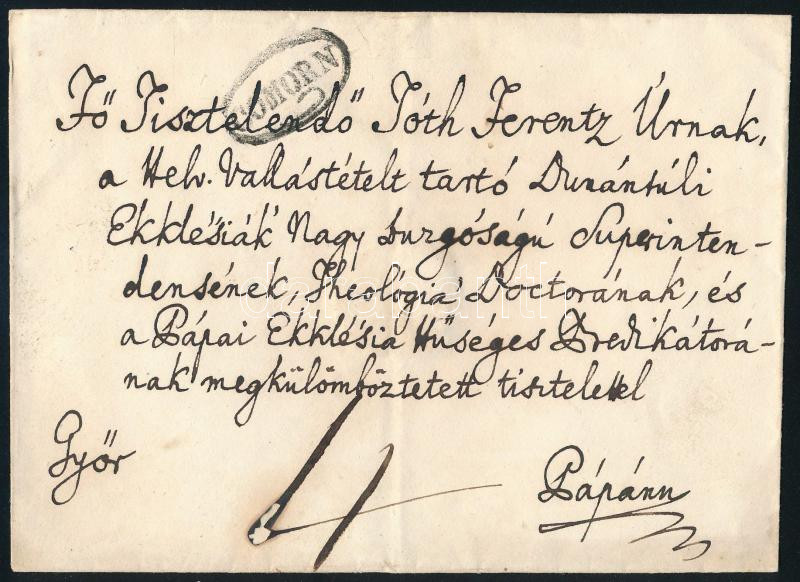 KOMORN
Fő Tisztelendő Tóth Ferentz Úrnak,
a Helv. Vallástételt tartó Dunántúli
Ekklésiák Nagy buzgóságú Superinten-
densének, Theológia Doctorának, és
a Pápai Ekklésia Hűséges Predikátorá-
nak megkülömböztetett tisztelettel
Győr
4
Pápánn
darabanth